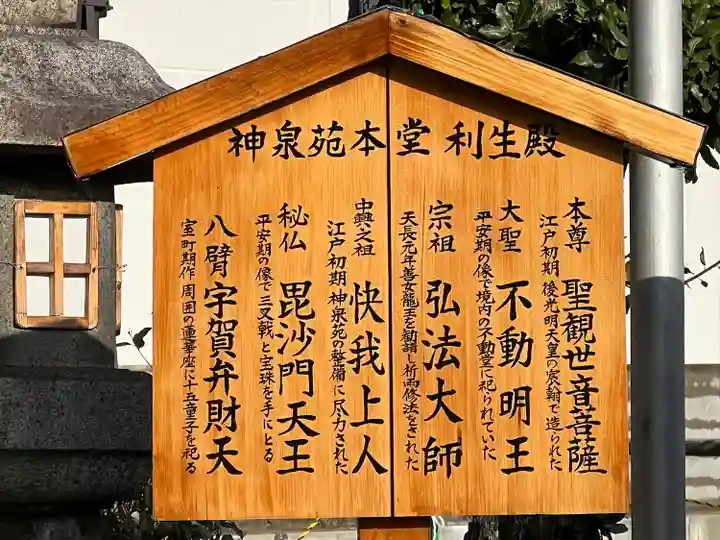 神泉苑本堂利生殿
本尊 聖観世音菩薩
江戸初期 後光明天皇の宸翰で造られた
大聖 不動明王
平安期の像で境内の不動堂に祀られていた
宗祖 弘法大師
天長元年善女龍王を勧請し祈雨修法をされた
中興之祖 快我上人
江戸初期 神泉苑の整備に尽力された
秘仏 毘沙門天王
平安期の像で三叉戟と宝珠を手にとる
八臂宇賀弁財天
室町期作 周囲の蓮華座に十五童子を祀る